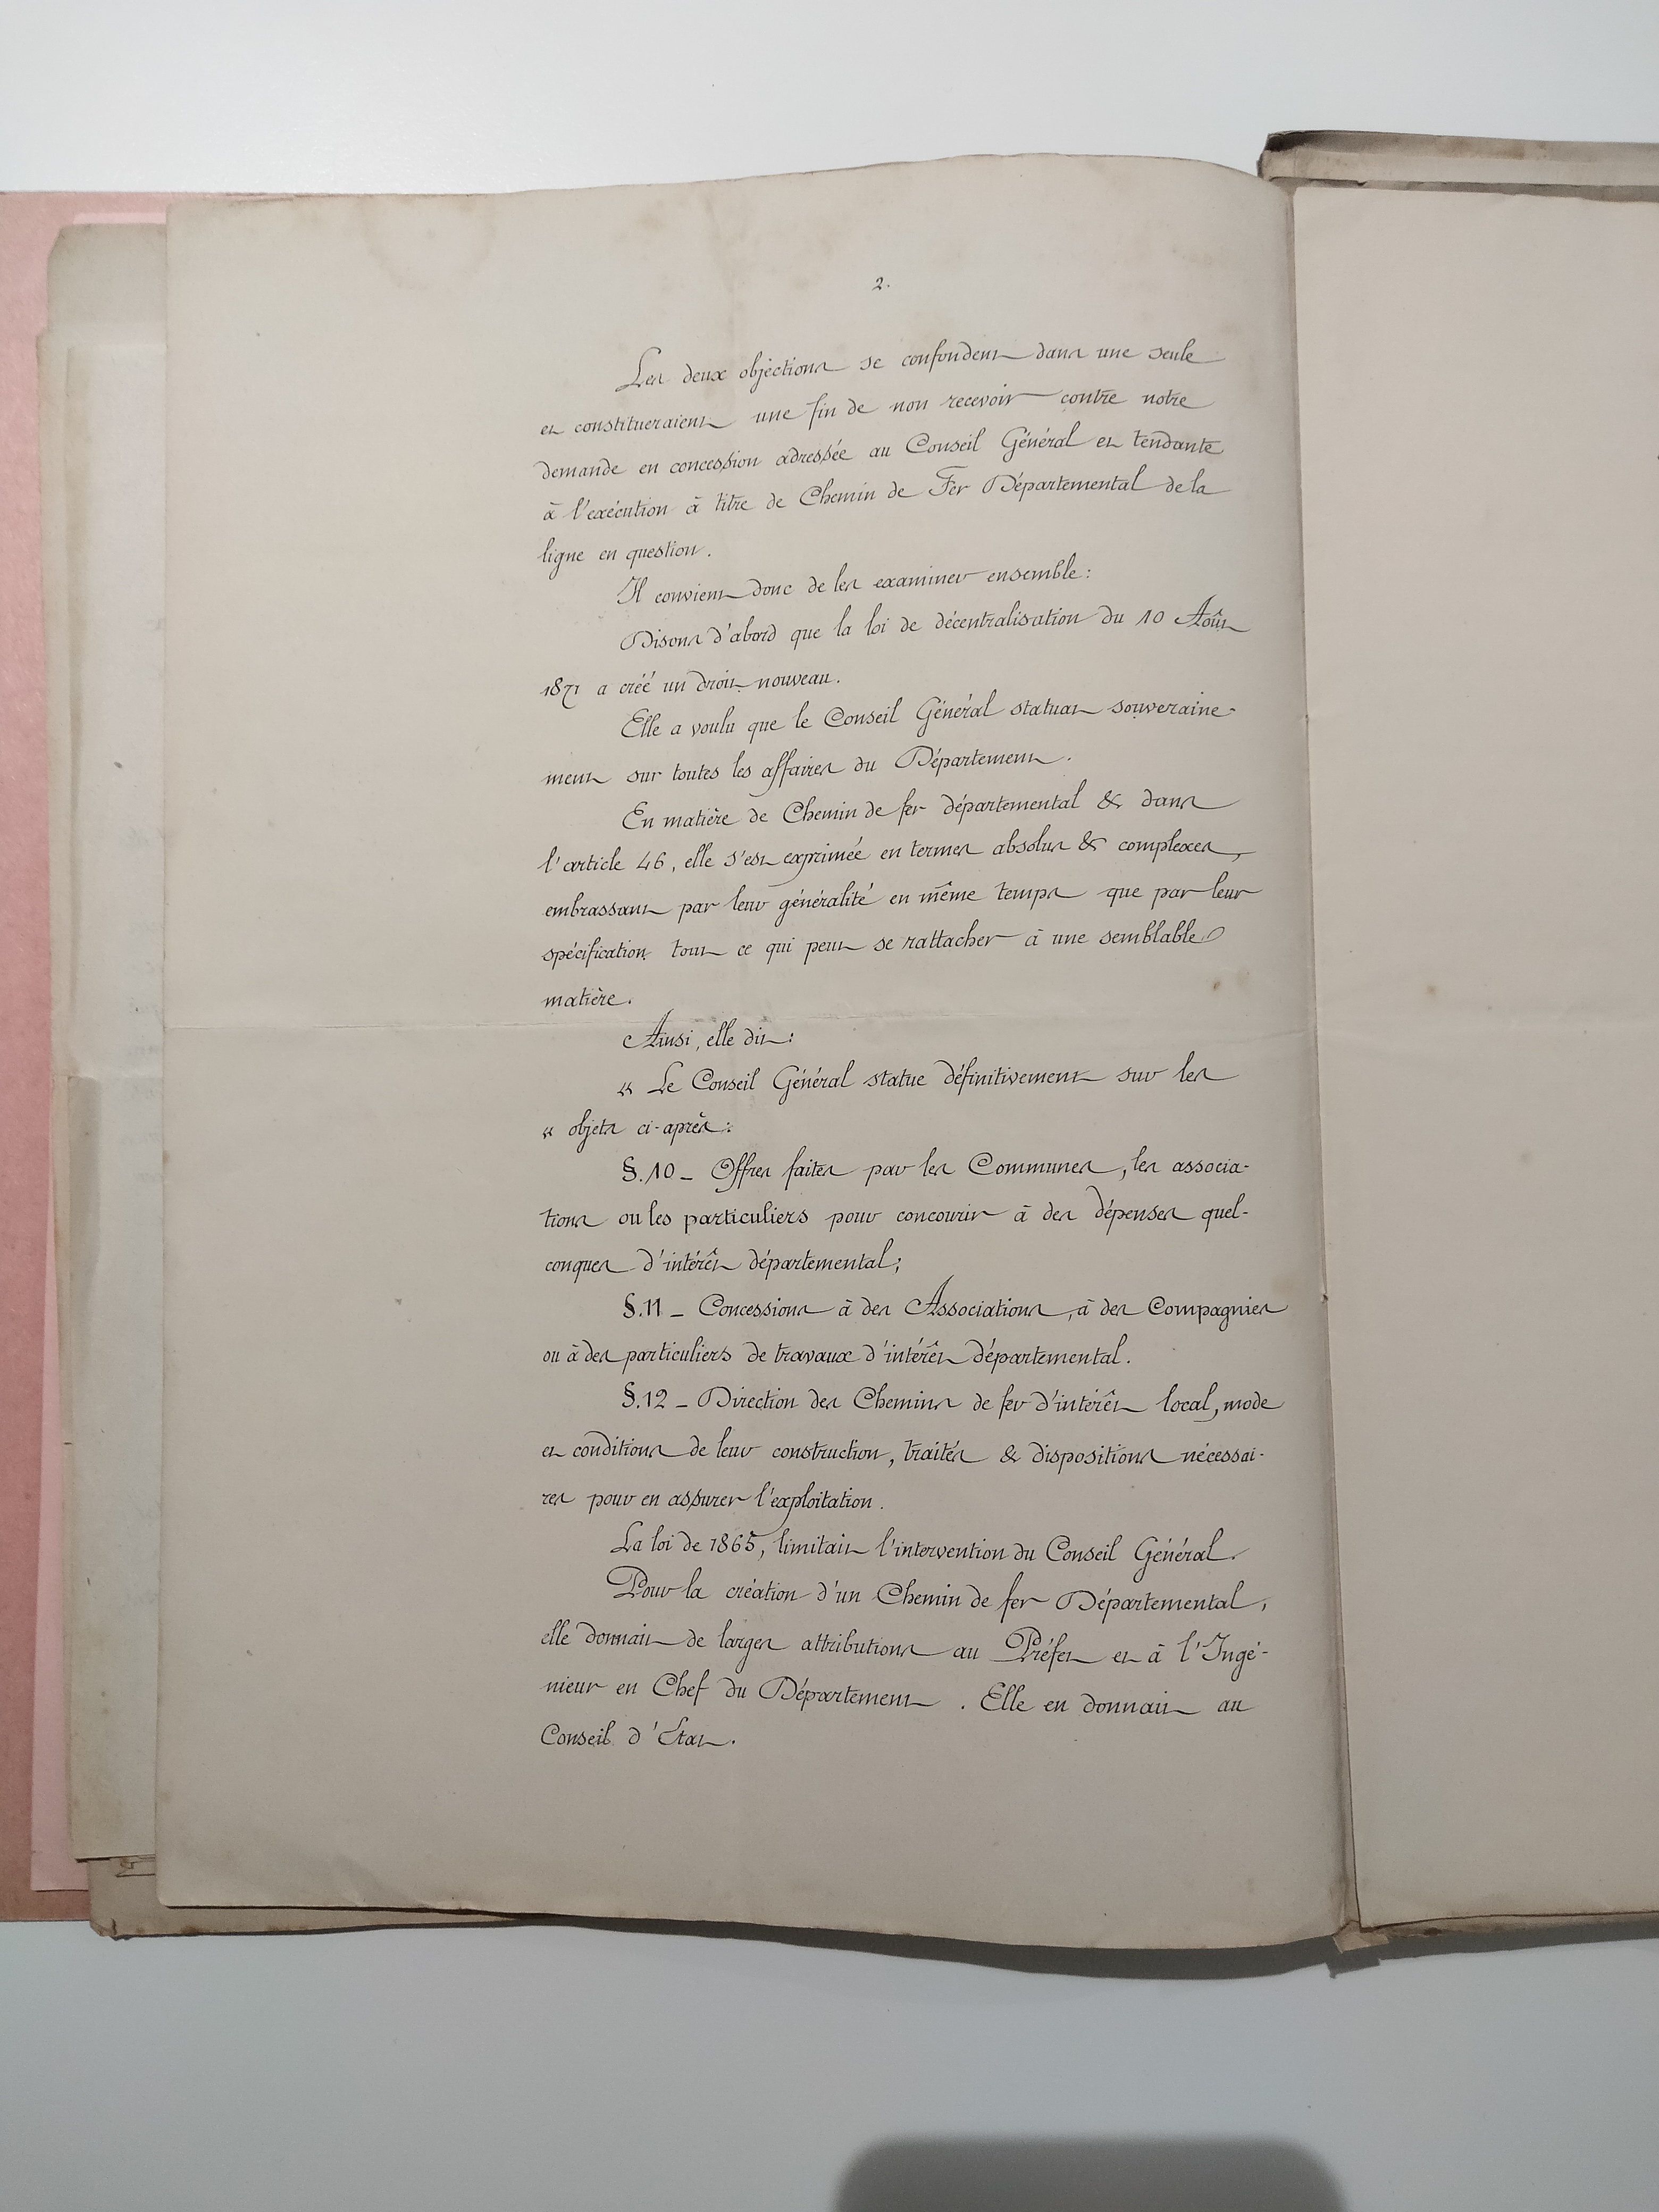 2.
Les deux objections se confondent dans une seule
et constitueraient une fin de non recevoir contre notre
demande en concession adressée au Conseil Général et tendante
à l'exécution à titre de Chemin de Fer Départemental de la
ligne en question.
Il convient donc de les examiner ensemble :
Disons d'abord que la loi de décentralisation du 10 Août
1871 a créé un droit nouveau.
Elle a voulu que le Conseil Général statuat souveraine-
ment sur toutes les affaires du Département.
En matière de Chemin de fer départemental & dans
l'article 46, elle s'est exprimée en termes absolus & complexes,
embrassant par leur généralité en même temps que par leur
spécification tout ce qui peut se rattacher à une semblable
matière.
Ainsi, elle dit :
« Le Conseil Général statue définitivement sur les
« objets ci-après :
§.10 _ Offres faites par les Communes, les associa-
tions ou les particuliers pour concourir à des dépenses quel-
conques d'intérêt départemental;
§.11 _ Concessions à des Associations, à des Compagnies
ou à des particuliers de travaux d'intérêt départemental.
§.12 _ Direction des Chemins de fer d'intérêt local, mode
et conditions de leur construction, traités & dispositions nécessai-
res pour en assurer l'exploitation.
La loi de 1865, limitait l'intervention du Conseil Général.
Pour la création d'un Chemin de fer Départemental,
elle donnait de larges attributions au Préfet et à l'Ingé-
nieur en Chef du Département. Elle en donnait au
Conseil d'Etat.